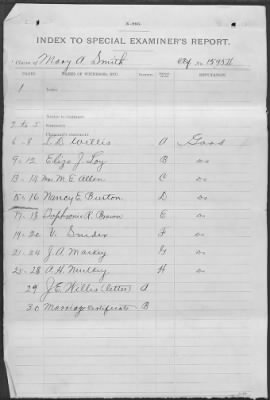 INDEX TO SPECIAL EXAMINER'S REPORT.
Claim of Mary A. Smith Ctf No. 15954
PAGES NAMES OF WITNESSES, ETC. EXHIBIT REPUTATION
1 Index
2 to 5
6-8 L. D. Willis A Good
9-12 Eliza J. Loy B do
13-14 Mrs M. E. Allen C do
15-16 Nancy E. Burton D do
17-18 Sophronia R. Brown E do
19-20 V. Snider F do
21-24 J. A. Markey G do
25-28 A. H. Mulkey H do
29 J. E. Willis (letter) A
30 Marriage Certificate B